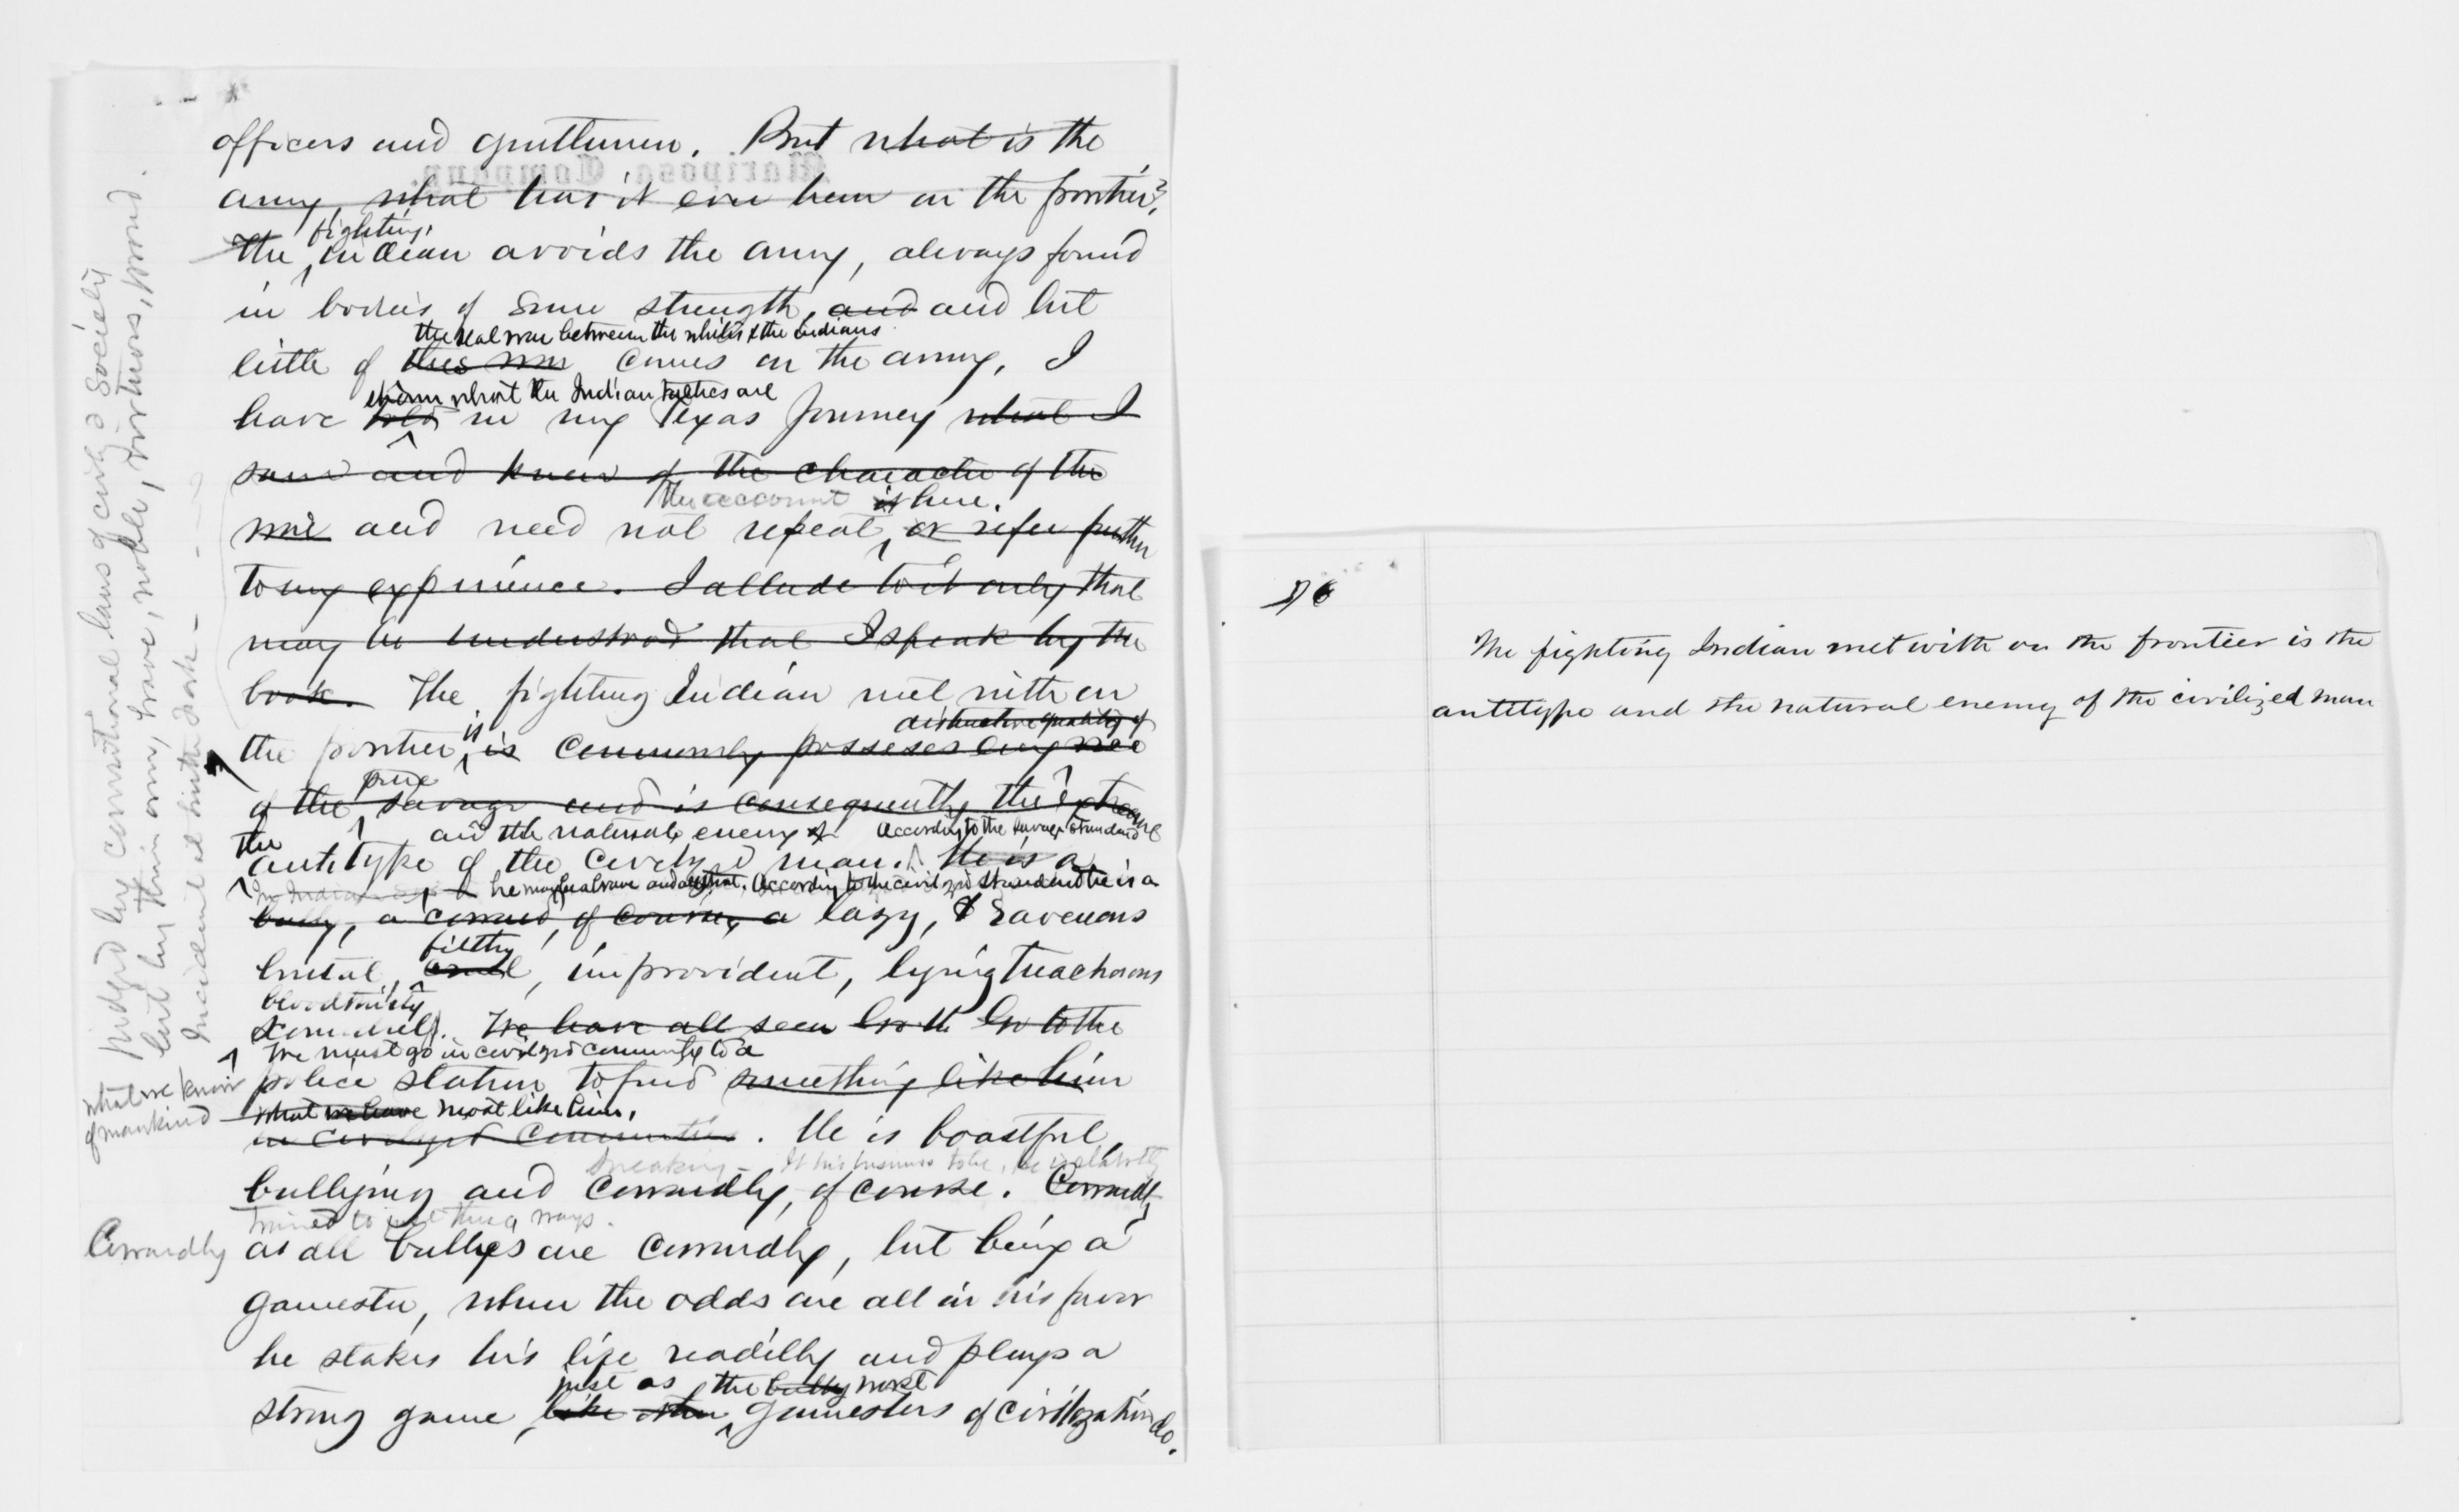 officers and gentlemen. But what is the
Mariposa Company.
army, what has it ever been on the frontier?
fighting
The Indian avoids the army, always found
in bodies of some strength, and and but
the real war between the whites & the Indians
little of this war comes on the army. I
shown what the Indian tactics are
have told in my Texas Journey what I
saw and knew of the character of the
the account is here.
and need not repeat, or refer further
to my experience. I allude to it only that
may be understood that I speak by the
book. The fighting Indian met with on
distinctive quality of
is
the frontier, is commonly possesses any
pure
of the savage and is consequently the extreme
and the natural enemy of According to the savage standard
the
antitype of the civilized man. He is a
In Indian he may be a brave and According to the civilized standard he is a
bully, a coward, of course, a lazy, & ravenous
filthy
brutal, cruel, improvident, lying treacherous
bloodthirsty
scoundrel. We have all seen Go to the
We must go in civilized community to a
police station to find something like him
what we know
of mankind
what we have most like him.
in civilized communities. He is boastful,
sneaking - It his business to be, he is
bullying and cowardly, of course. Cowardly
trained to just these ways.
Cowardly as all bullies are cowardly, but being a
gamester, when the odds are all in his favor
he stakes his life readilly and plays a
just as the bully worst
strong game, like other gamesters of civilization do.
judged by conventional laws of civilized society
but by their own, brave, noble, virtuous, proud.
Incidental
76
The fighting Indian met with on the frontier is the
antitype and the natural enemy of the civilized man